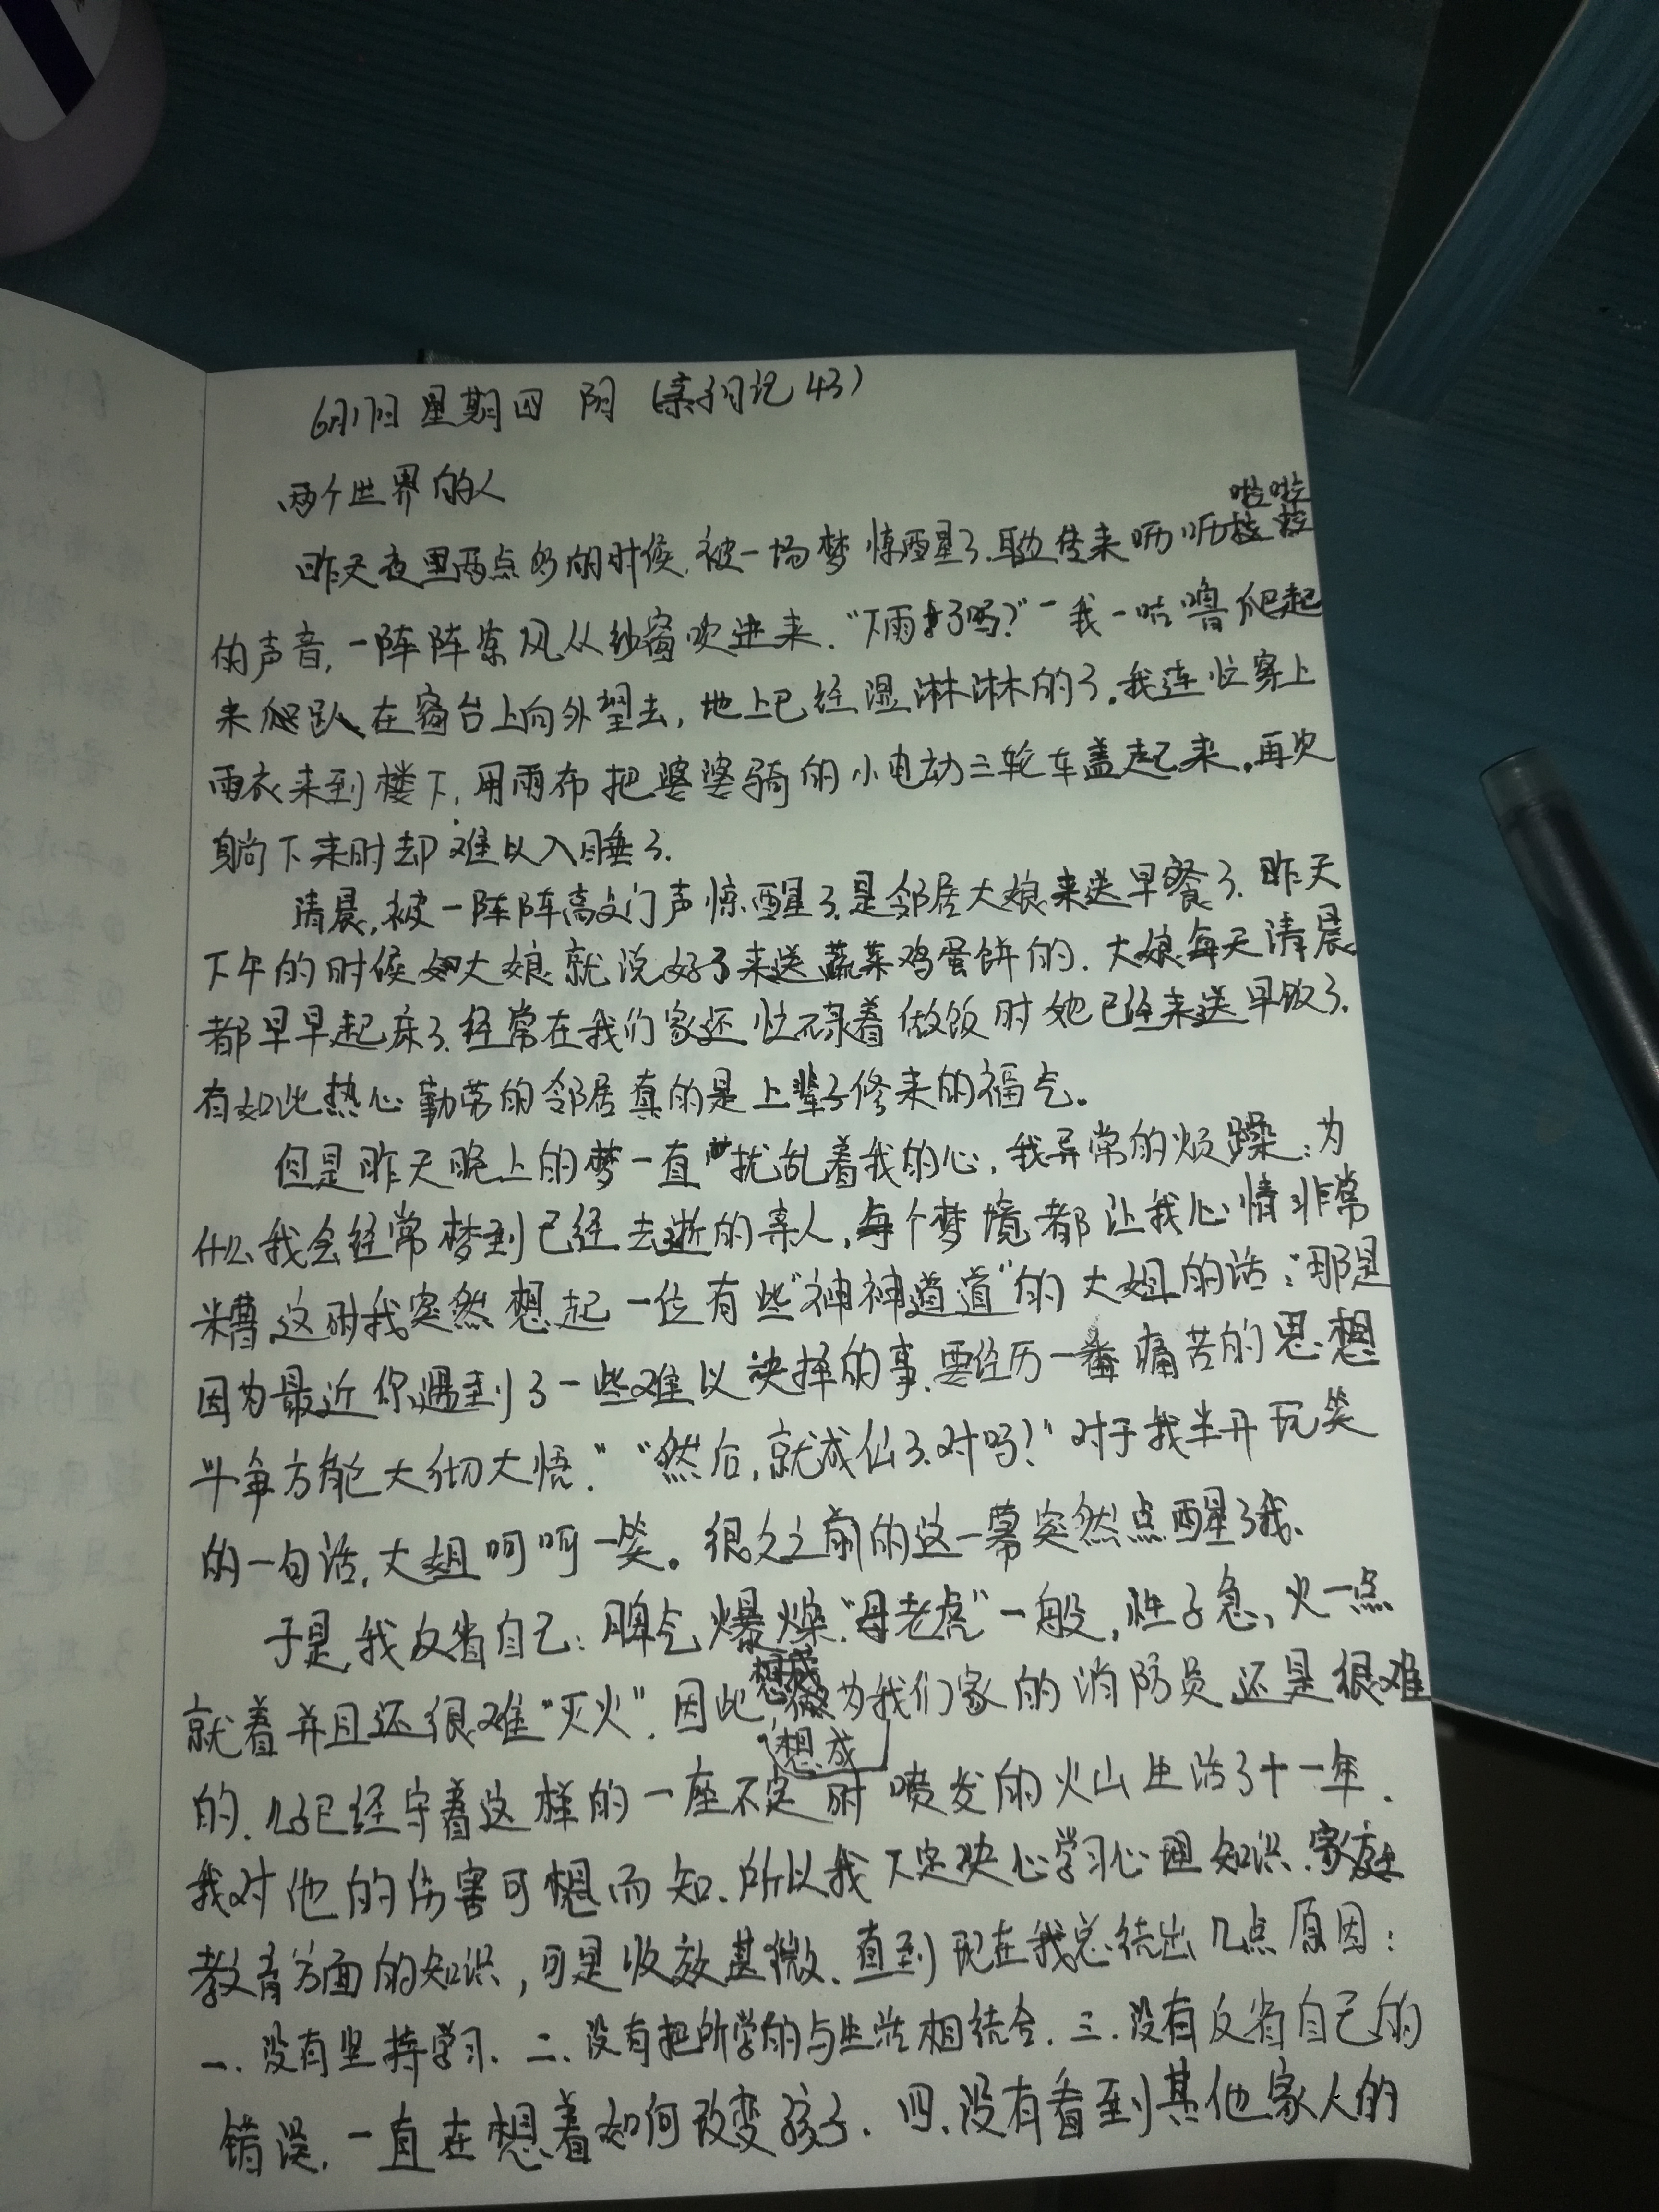 6月17日 星期四 阴 (亲子日记43)
两个世界的人
啦啦
昨天夜里两点多的时候,被一场梦惊醒了.耳边传来哂哂
的声音,一阵阵凉风从纱窗吹进来.“下雨了吗?”一我一咕噜爬起
来趴在窗台上向外望去,地上已经湿淋淋的了.我连忙穿上
雨衣来到楼下,用雨布把婆婆骑的小电动三轮车盖起来.再次
躺下来时却难以入睡了.
清晨,被一阵阵敲门声惊醒了.是邻居大娘来送早餐了.昨天
下午的时候大娘就说好了来送蔬菜鸡蛋饼的.大娘每天清晨
都早早起床了.经常在我们家还忙碌着做饭时她已经来送早饭了.
有如此热心勤劳的邻居真的是上辈子修来的福气。
但是昨天晚上的梦一直扰乱着我的心,我异常的烦躁:为
什么我会经常梦到已经去逝的亲人,每个梦境都让我心情非常
糟.这时我突然想起一位有些“神神道道”的大姐的话:“那是
因为最近你遇到了一些难以诀择的事.要经历一番痛苦的思想
斗争方能大彻大悟.”“然后,就成仙了.对吗?”对于我半开玩笑
的一句话,大姐呵呵一笑。很久之前的这一幕突然点醒了我.
于是,我反省自己:脾气爆燥.“母老虎”一般,性子急,火一点
就着并且还很难“灭火”.因此,想成为我们家的消防员还是很难
想成
的.儿子已经守着这样的一座不定时喷发的火山生活了十一年.
我对他的伤害可想而知.所以我下定决心学习心理知识.家庭
教育方面的知识,可是收效甚微.直到现在我总结出几点原因:
一.没有坚持学习.二.没有把所学的与生活相结合.三.没有反省自己的
错误,一直在想着如何改变孩子.四.没有看到其他家人的